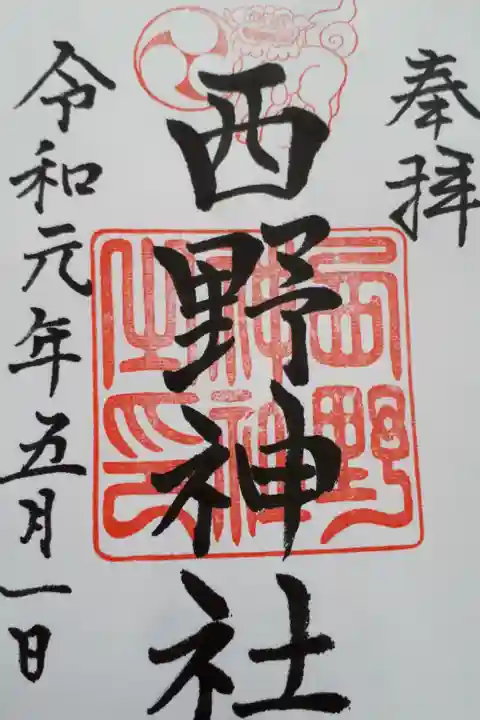 奉拝
西野神社
令和元年五月一日
西野
神社
之印